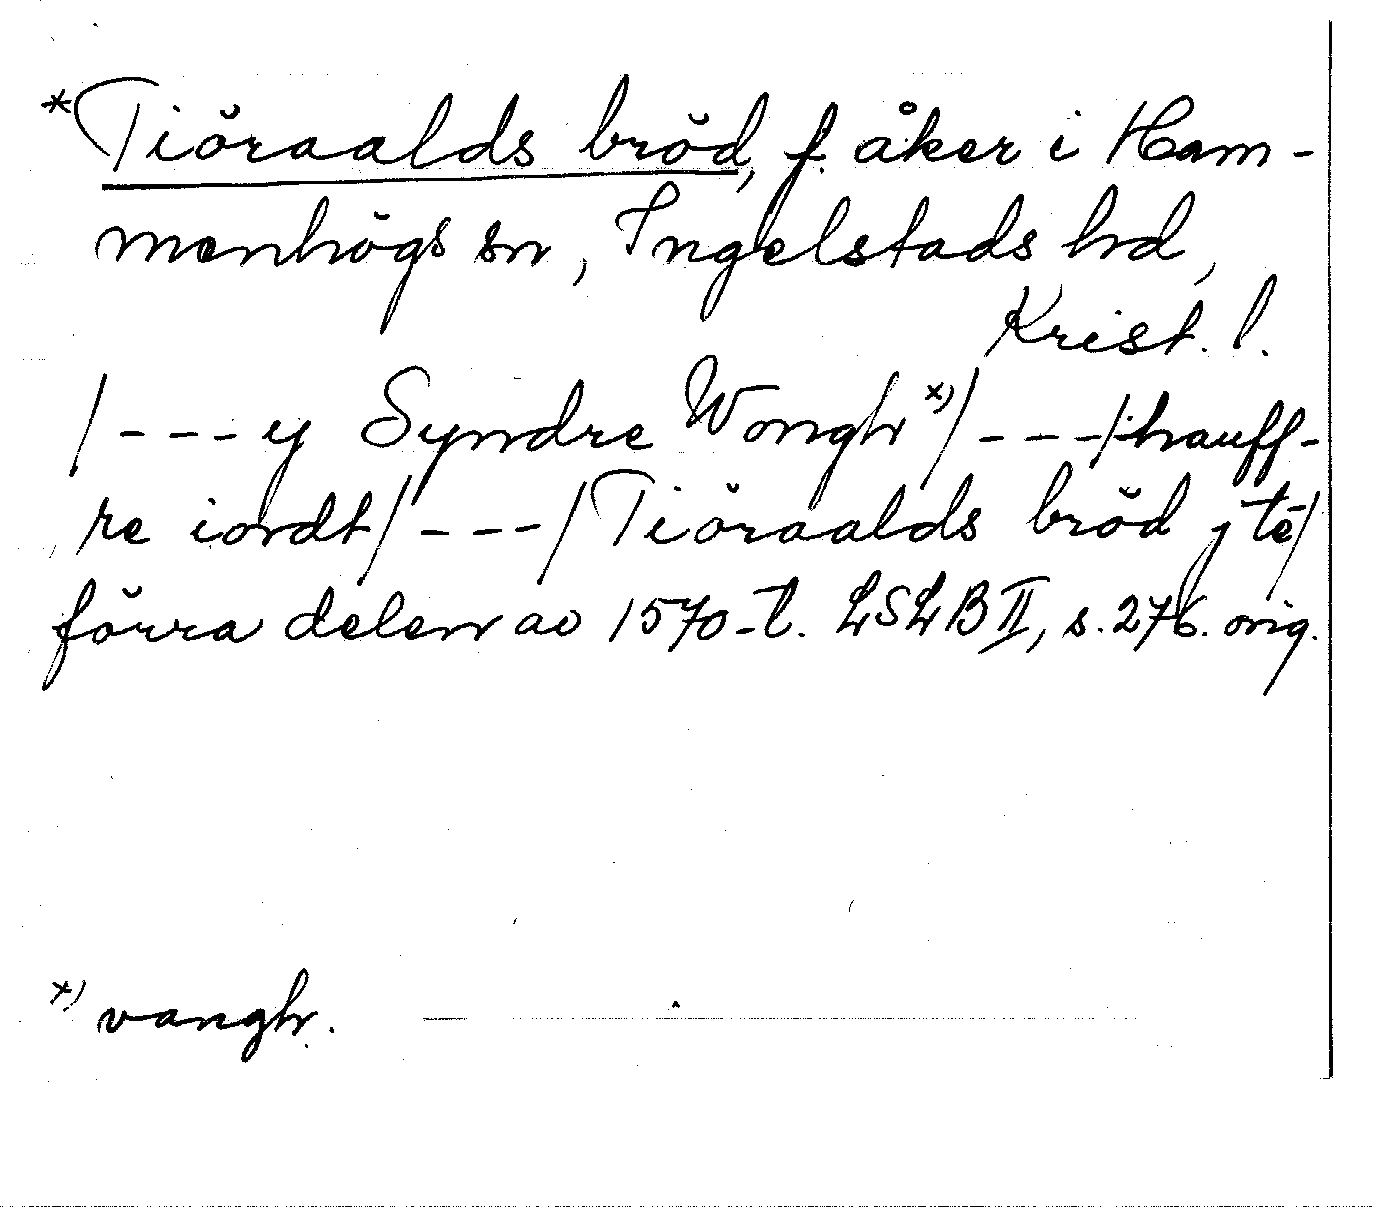 *Tiöraalds bröd, f. åker i Ham-
menhögs sn, Ingelstads hd,
Krist. l.
/---y Syndre Wongh x)/---/hauff-
re iordt/---/Tiöraalds bröd j tē/
förra delen av 1570-t. LSLB II, s. 276. orig.
x) vangh.